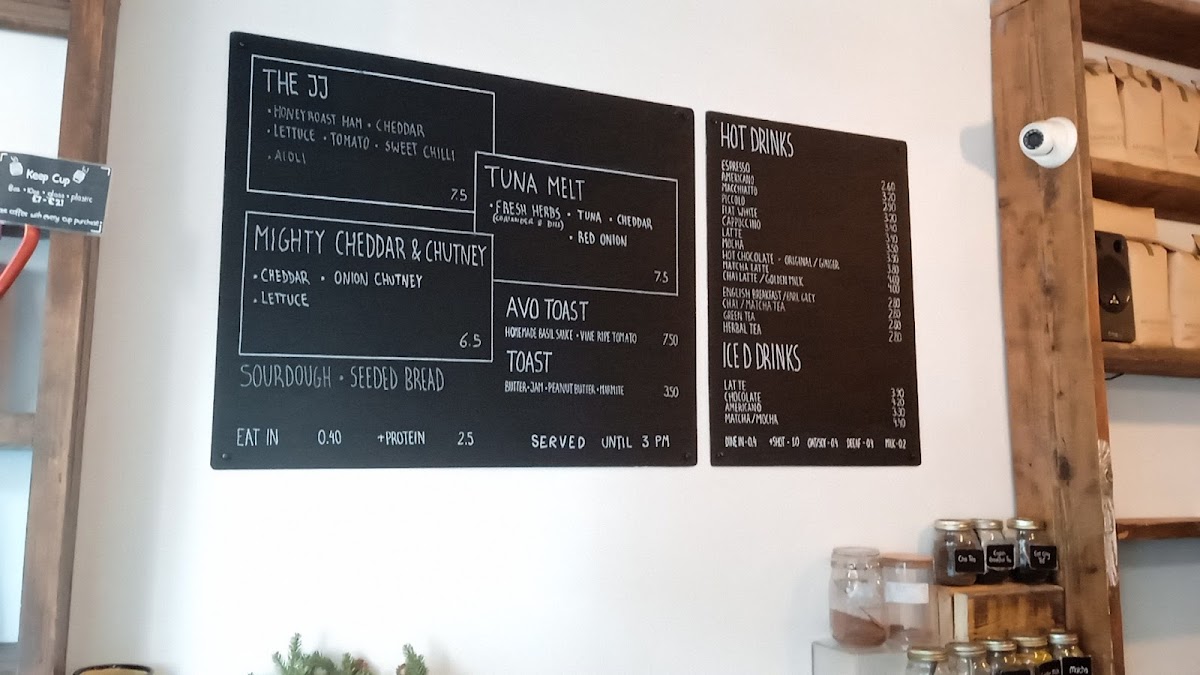 Keep Cup
THE JJ
• HONEY ROAST HAM • CHEDDAR
• LETTUCE • TOMATO • SWEET CHILLI
• AIOLI
7.5
TUNA MELT
• FRESH HERBS • TUNA • CHEDDAR
(CORIANDER & DILL)
• RED ONION
7.5
MIGHTY CHEDDAR & CHUTNEY
• CHEDDAR • ONION CHUTNEY
• LETTUCE
6.5
AVO TOAST
HOMEMADE BASIL SAUCE • VINE RIPE TOMATO 7.50
TOAST
BUTTER • JAM • PEANUT BUTTER • MARMITE 3.50
SOURDOUGH • SEEDED BREAD
EAT IN 0.40 +PROTEIN 2.5 SERVED UNTIL 3 PM
HOT DRINKS
ESPRESSO
AMERICANO 2.60
MACCHIATTO 3.20
PICCOLO 2.90
FLAT WHITE 3.20
CAPPUCCINO 3.40
LATTE 3.40
MOCHA 3.50
HOT CHOCOLATE - ORIGINAL / GINGER 3.50
MATCHA LATTE 3.80
CHAI LATTE / GOLDEN MILK 4.00
ENGLISH BREAKFAST / EARL GREY 2.80
CHAI / MATCHA TEA 2.80
GREEN TEA 2.80
HERBAL TEA 2.80
ICED DRINKS
LATTE 3.90
CHOCOLATE 4.20
AMERICANO 3.30
MATCHA/MOCHA 4.40
DINE IN - 0.4 +SHOT - 1.0 OAT/SOY - 0.4 DECAF - 0.4 MILK - 0.2
Matcha